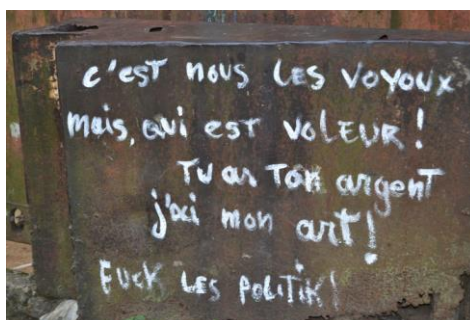 c'est nous les voyoux
mais, qui est voleur !
Tu as ton argent
j'ai mon art !
FUCK LES POLITIK !